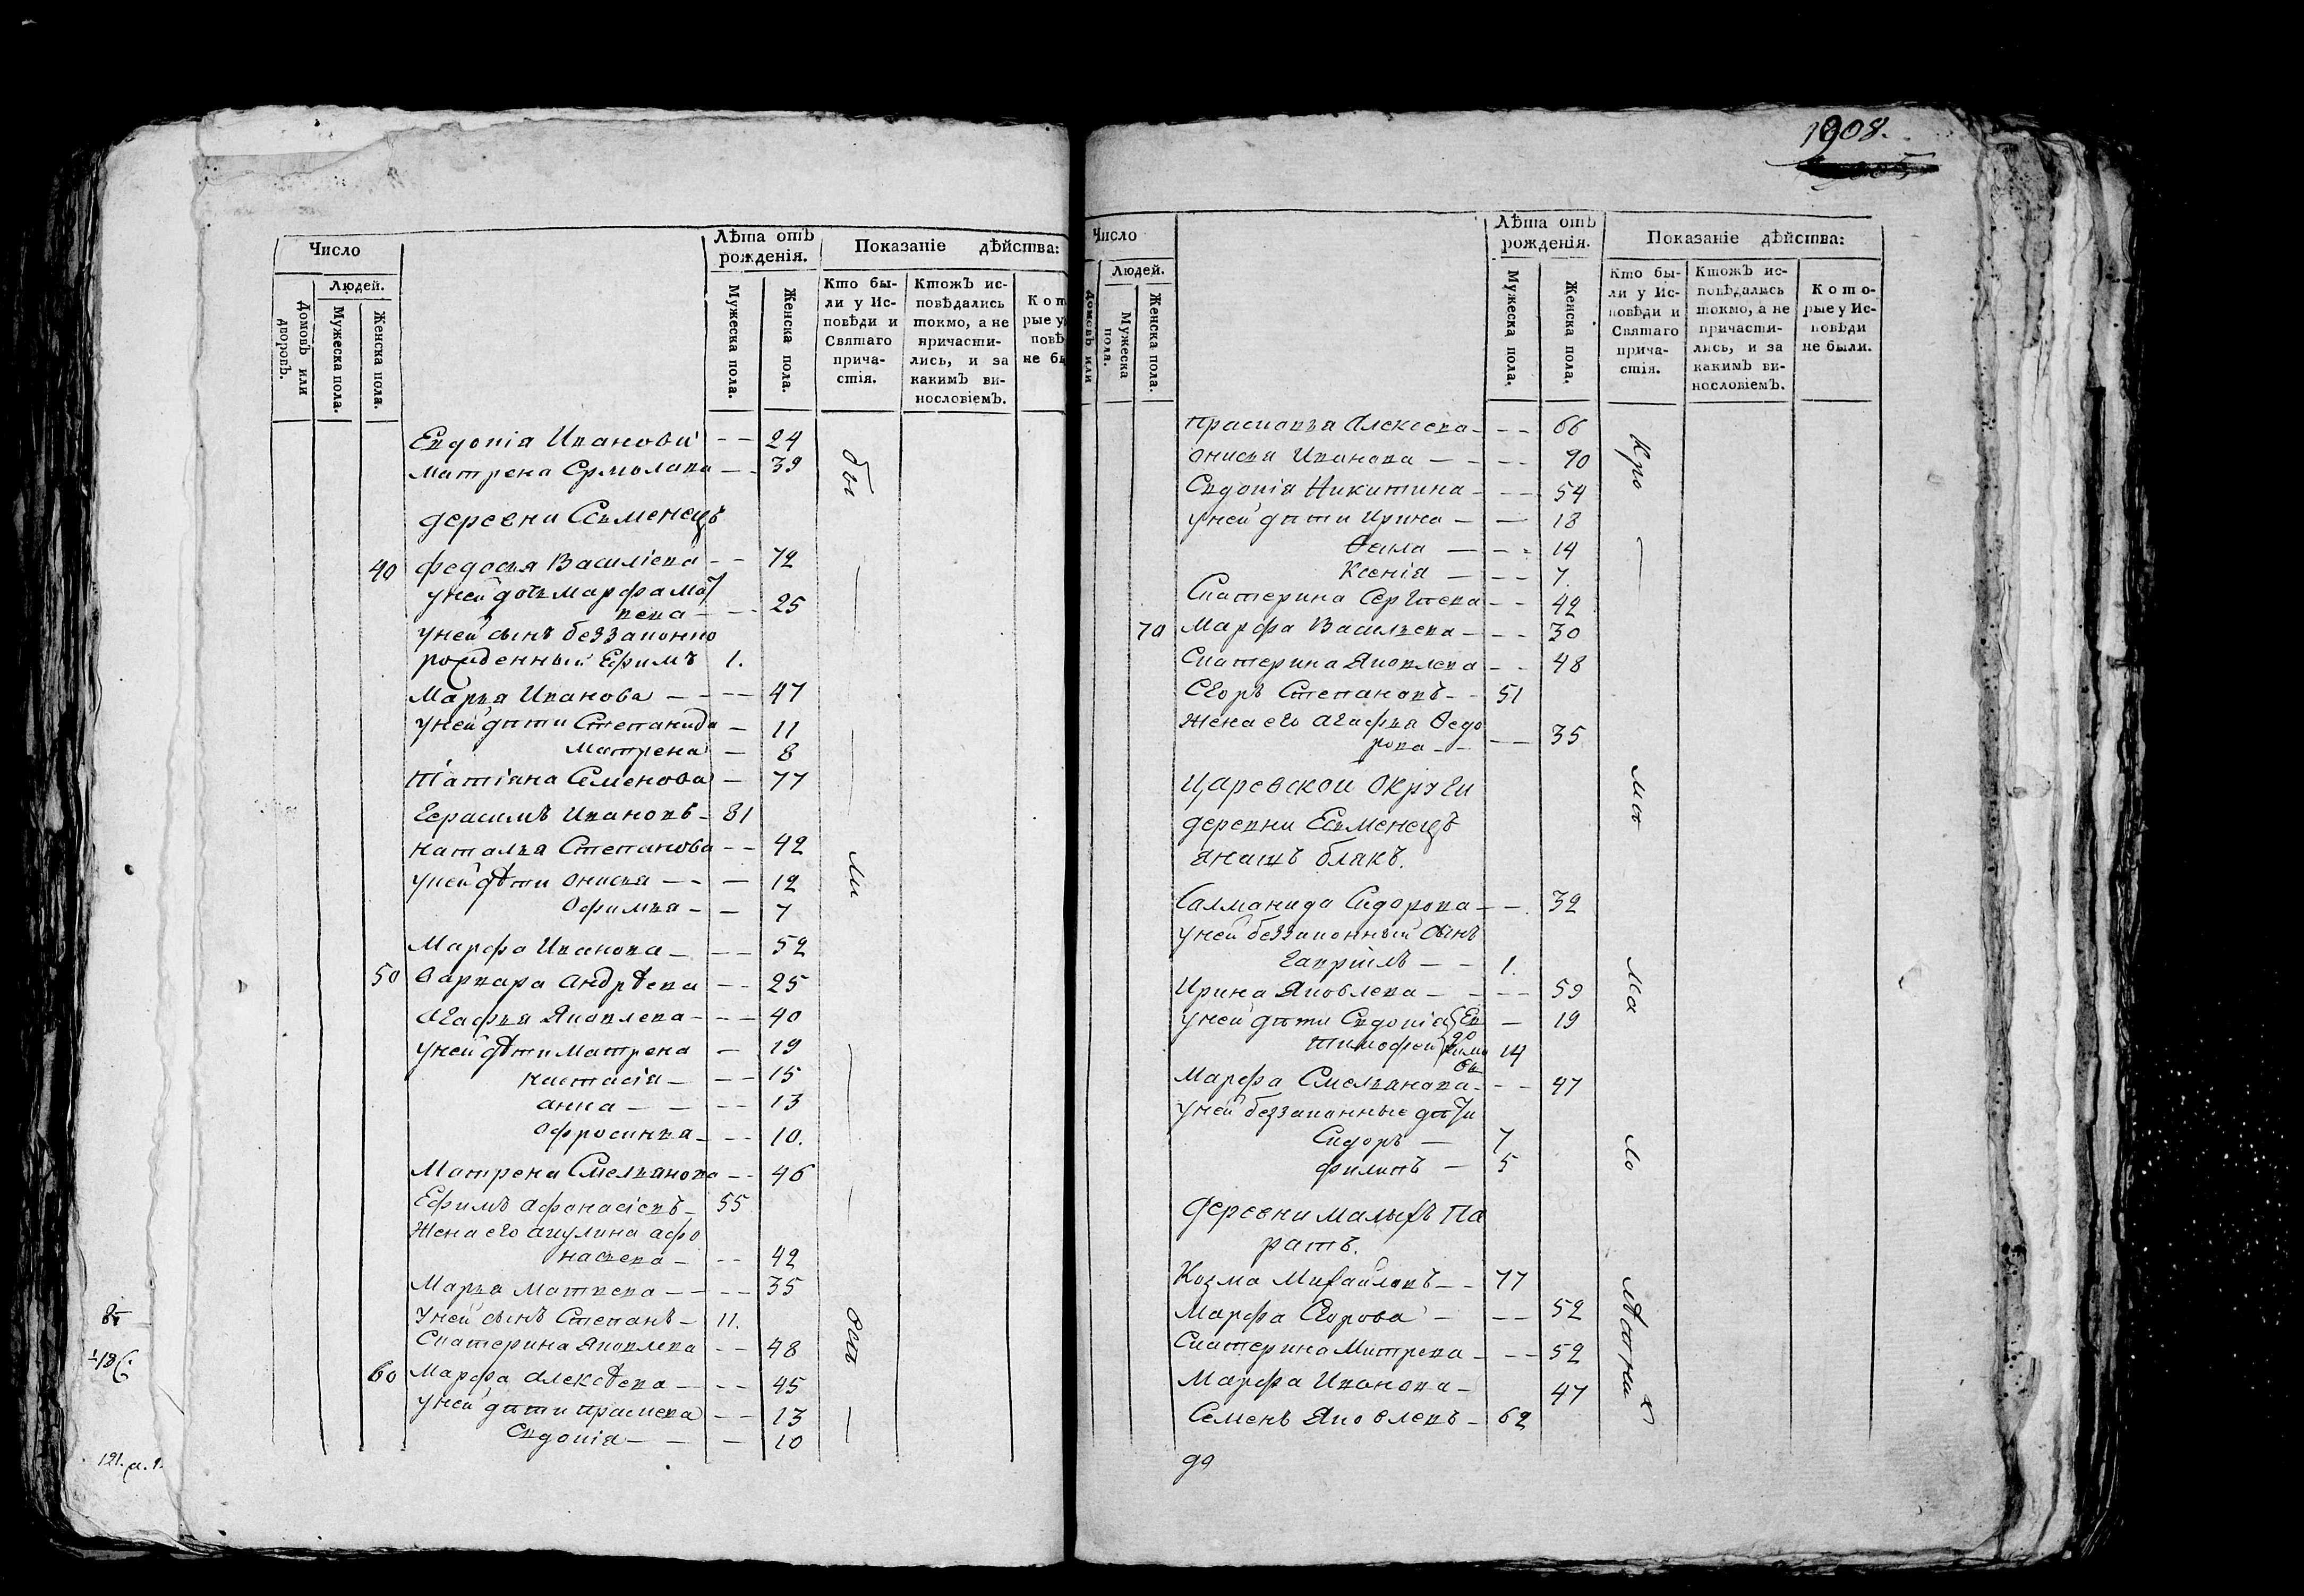 Число
Людей.
Домовъ или дворовъ.
Мужеска пола.
Женска пола.
Лѣта отъ рожденія.
Мужеска пола.
Женска пола.
Показаніе дѣйства:
Кто бы-
ли у Ис-
повѣди и
Святаго
прича-
стія.
Ктожъ ис-
повѣдались
токмо, а не
причасти-
лись, и за
какимъ ви-
нословіемъ.
Кот
рые у
повѣ
не бы
Евдокія Иванова - - 24
Матрена Ермолаева - - 39
деревни Есьменецъ
40 Федосья Василіева - - 72
у ней дочь Марфа Мат
веева - - - 25
у ней сынъ беззаконно
рожденный Ефимъ 1.
Марья Иванова - - - 47
у ней дѣти Степанида - 11
Матрена - 8
Татіана Семенова - 77
Герасимъ Ивановъ - 81
Наталья Степанова - - 42
у ней дѣти Онисья - - - 12
Офимья - - 7
Марфа Иванова - - - 52
50 Варвара Андрѣева - - 25
Агафья Яковлева - - - 40
у ней дѣти Матрена - 19
Настасія - - - 15
Анна - - - - 13
Офросинья - - - 10.
Матрена Емельянова - - 46
Ефимъ Афонасіевъ - 55
Жена его Акулина Афо
насьева - - - 42
Марья Матвеева - - - - 35
У ней сынъ Степанъ - 11.
Екатерина Яковлева - - 48
60 Марфа Алексѣева - - - 45
у ней дѣти Прасковья - - 13
Евдокія - - - 10
бы
ли
оси
121.
1908.
Число
Людей.
Домовъ или
Мужеска пола.
Женска пола.
Лѣта отъ
рожденія.
Мужеска пола.
Женска пола.
Показаніе дѣйства:
Кто бы-
ли у Ис-
повѣди и
Святаго
прича-
стія.
Ктожъ ис-
повѣдались
токмо, а не
причасти-
лись, и за
какимъ ви-
нословіемъ.
Кото-
рые у Ис-
повѣди
не были.
Прасковья Алексеева - - - 66
Онисья Иванова - - - - 90
Евдокія Никитина - - - 54
у ней дѣти Ирина - - 18
Ѳекла - - - 14
Ксенія - - - 7.
Екатерина Сергѣева - - 42
70 Марфа Васильева - - - 30
Екатерина Яковлева - - 48
Егоръ Степановъ - - 51
Жена его Агафья Ѳедо
рова - - - - 35
Царевской Округи
деревни Есьменецъ
Анашъ блякъ.
Саломанида Сидорова - - 32
у ней беззаконный сынъ
Гавріилъ - - 1.
Ирина Яковлева - - - - 59
у ней дѣти Евдокія - 19
Тимофей 14
Марфа Емельянова - - - 47
у ней беззаконные дѣти
Сидоръ - 7
Филипъ - 5
Деревни малыхъ Па
ратъ.
Козма Михайловъ - - 77
Марфа Егорова - - - 52
Екатерина Митрева - - - 52
Марфа Иванова - 47
Семенъ Яковлевъ - 62
Кро
мѣ
ма
ло
лѣтнихъ